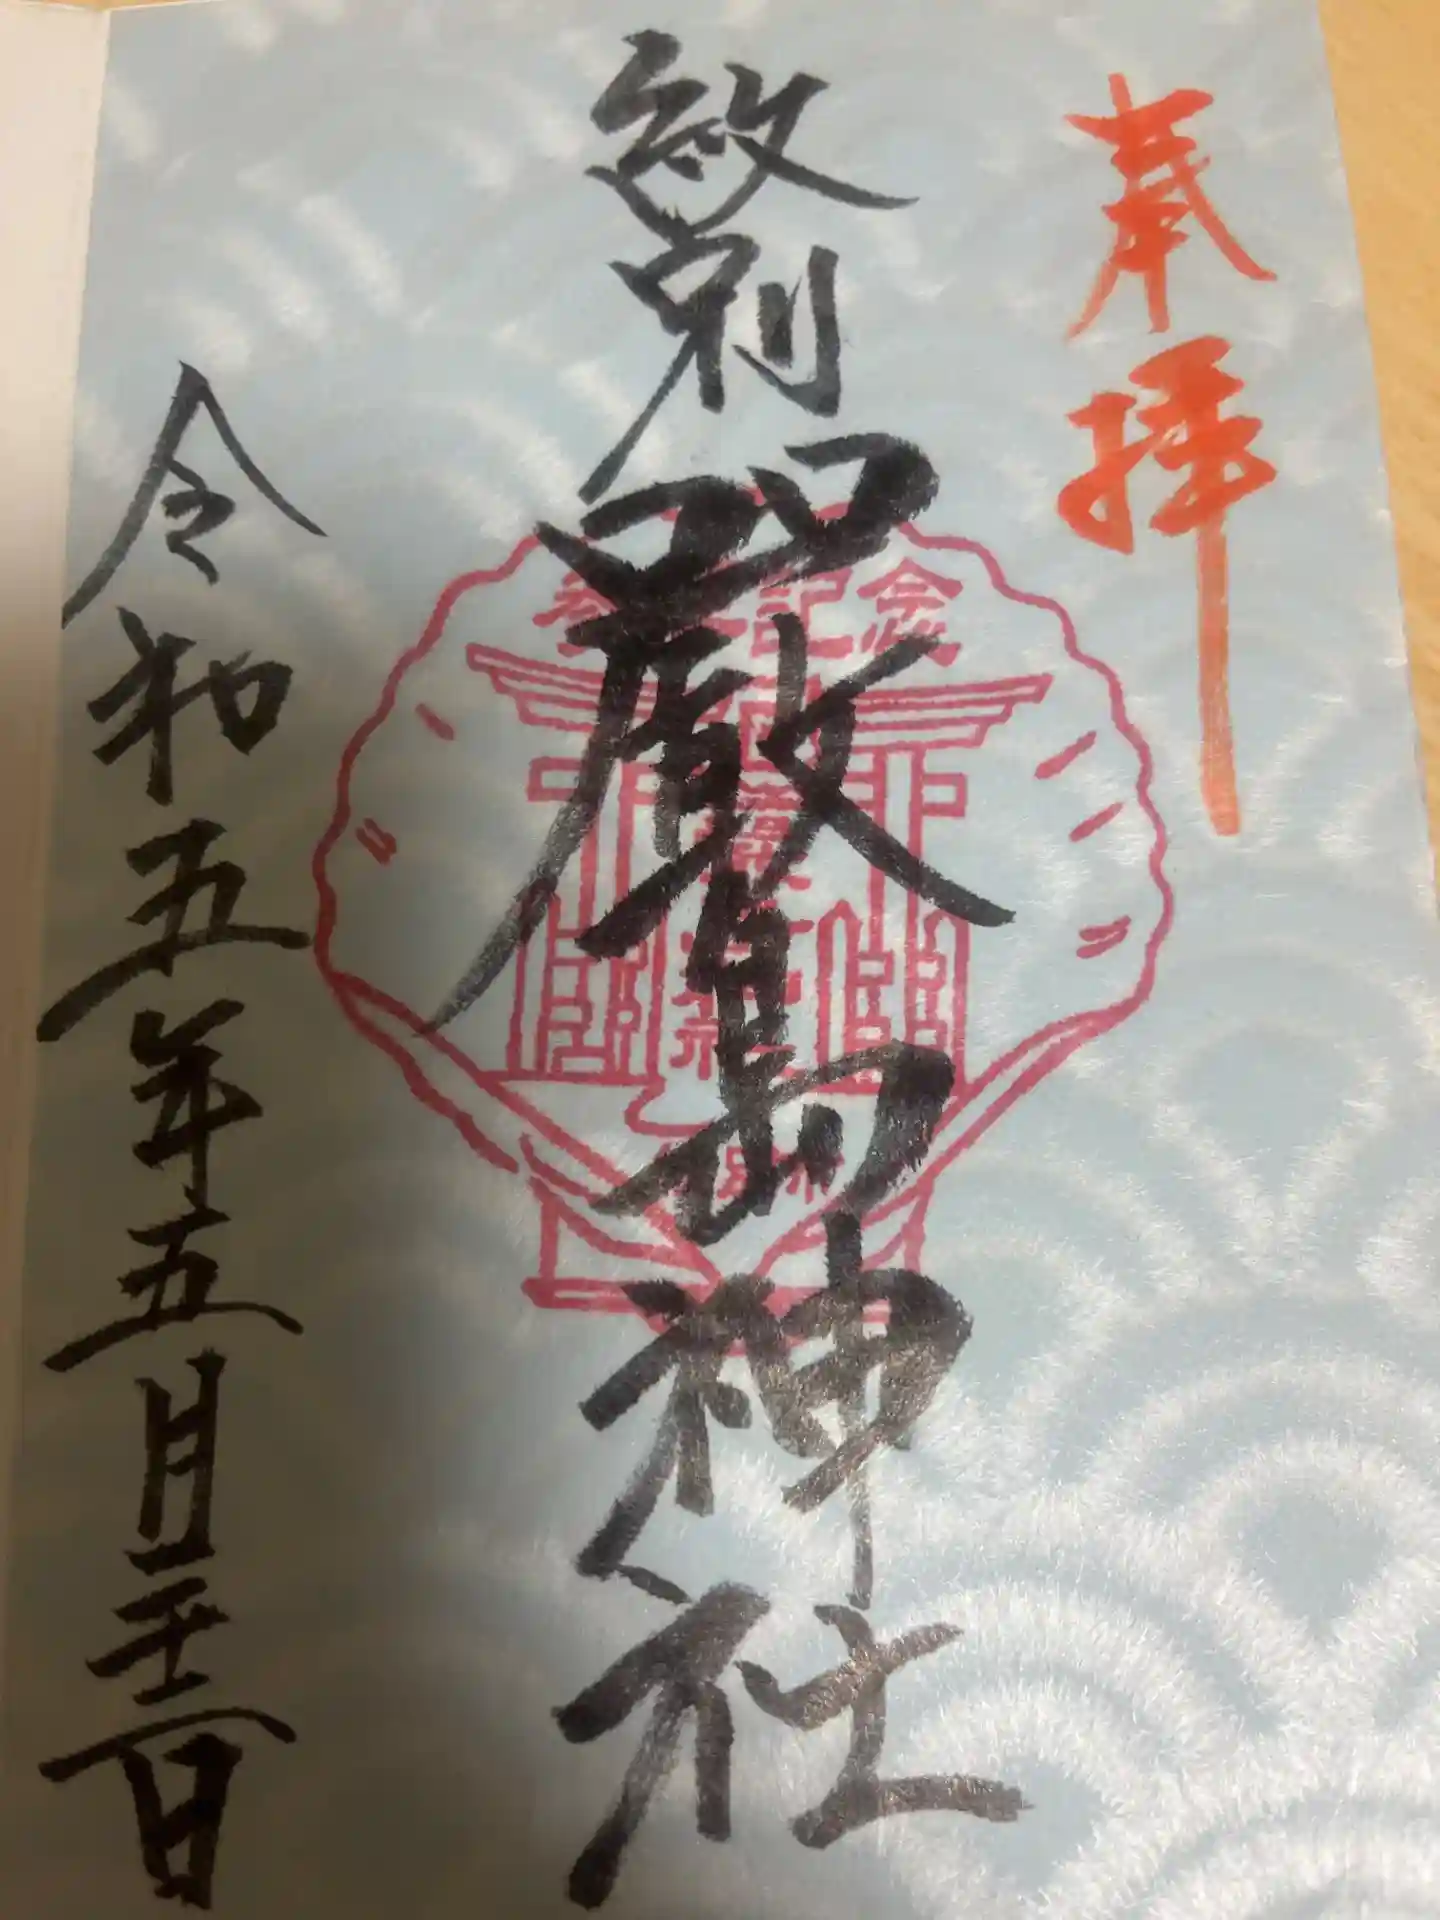 奉拝
紋別
厳島神社
令和五年五月二十二日
記念